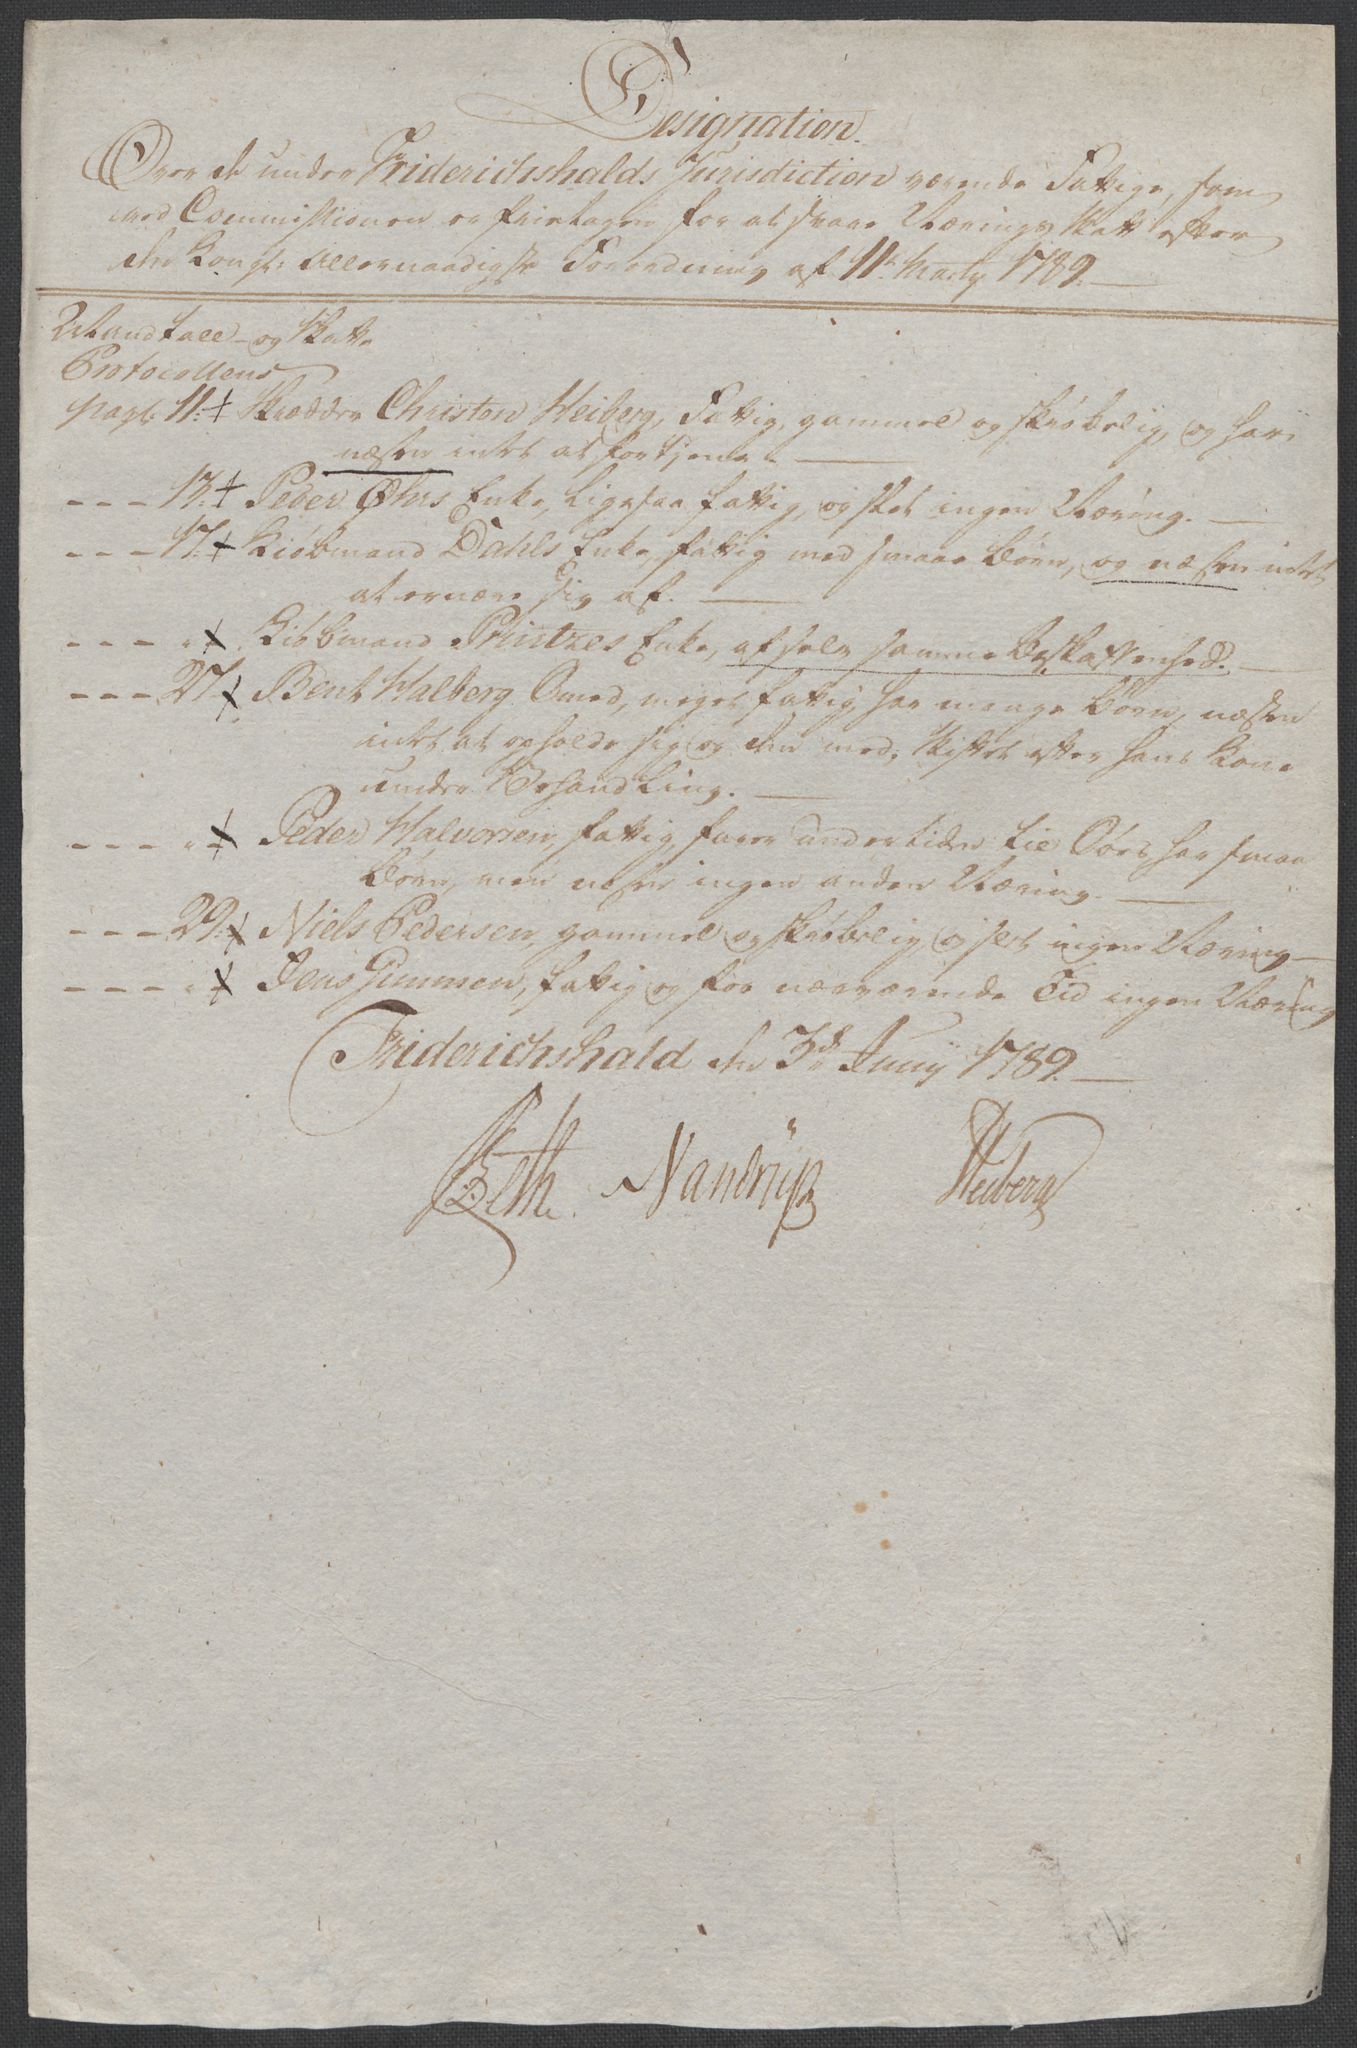 Designation.
Over de under Friderichshalds Jurisdiction værende Fattige, som
ved Commissionen er fritagen for at svare Nærings Skatt efter
den Kongl: allernaadigste Forordning af 11te Martij 1789.
Mandtall- og Skatte
Protocollens
pag: 11. + Skræder Christen Heiberg, Fattig, gammel og skrøbelig, og har
næsten intet at fortjene. —
- - - 13. + Peder Øhrs Enke, ligesaa fattig, og slet ingen Næring. —
- - - 17. + Kiøbmand Dahls Enke, fattig med smaae Børn, og næsten intet
at ernære sig af. —
- - - " + Kiøbmand Printzes Enke, af selv samme Beskaffenhed. —
- - - 27. + Bent Halberg Smed, meget fattig, har mange Børn, næsten
intet at opholde sig og dem med, Skiftet efter hans Kone
under Behandling. —
- - - " + Peder Halvorsen, fattig, farer undertiden til Søes har smaa
Børn, men næsten ingen anden Næring. —
- - - 29. + Niels Pedersen, gammel og skrøbelig og slet ingen Næring —
- - - " + Jens Gunmen, fattig og for nærværende Tid ingen Næring
Friderichshald den 3de Junij 1789. —
Beth. Nandrup Heiberg